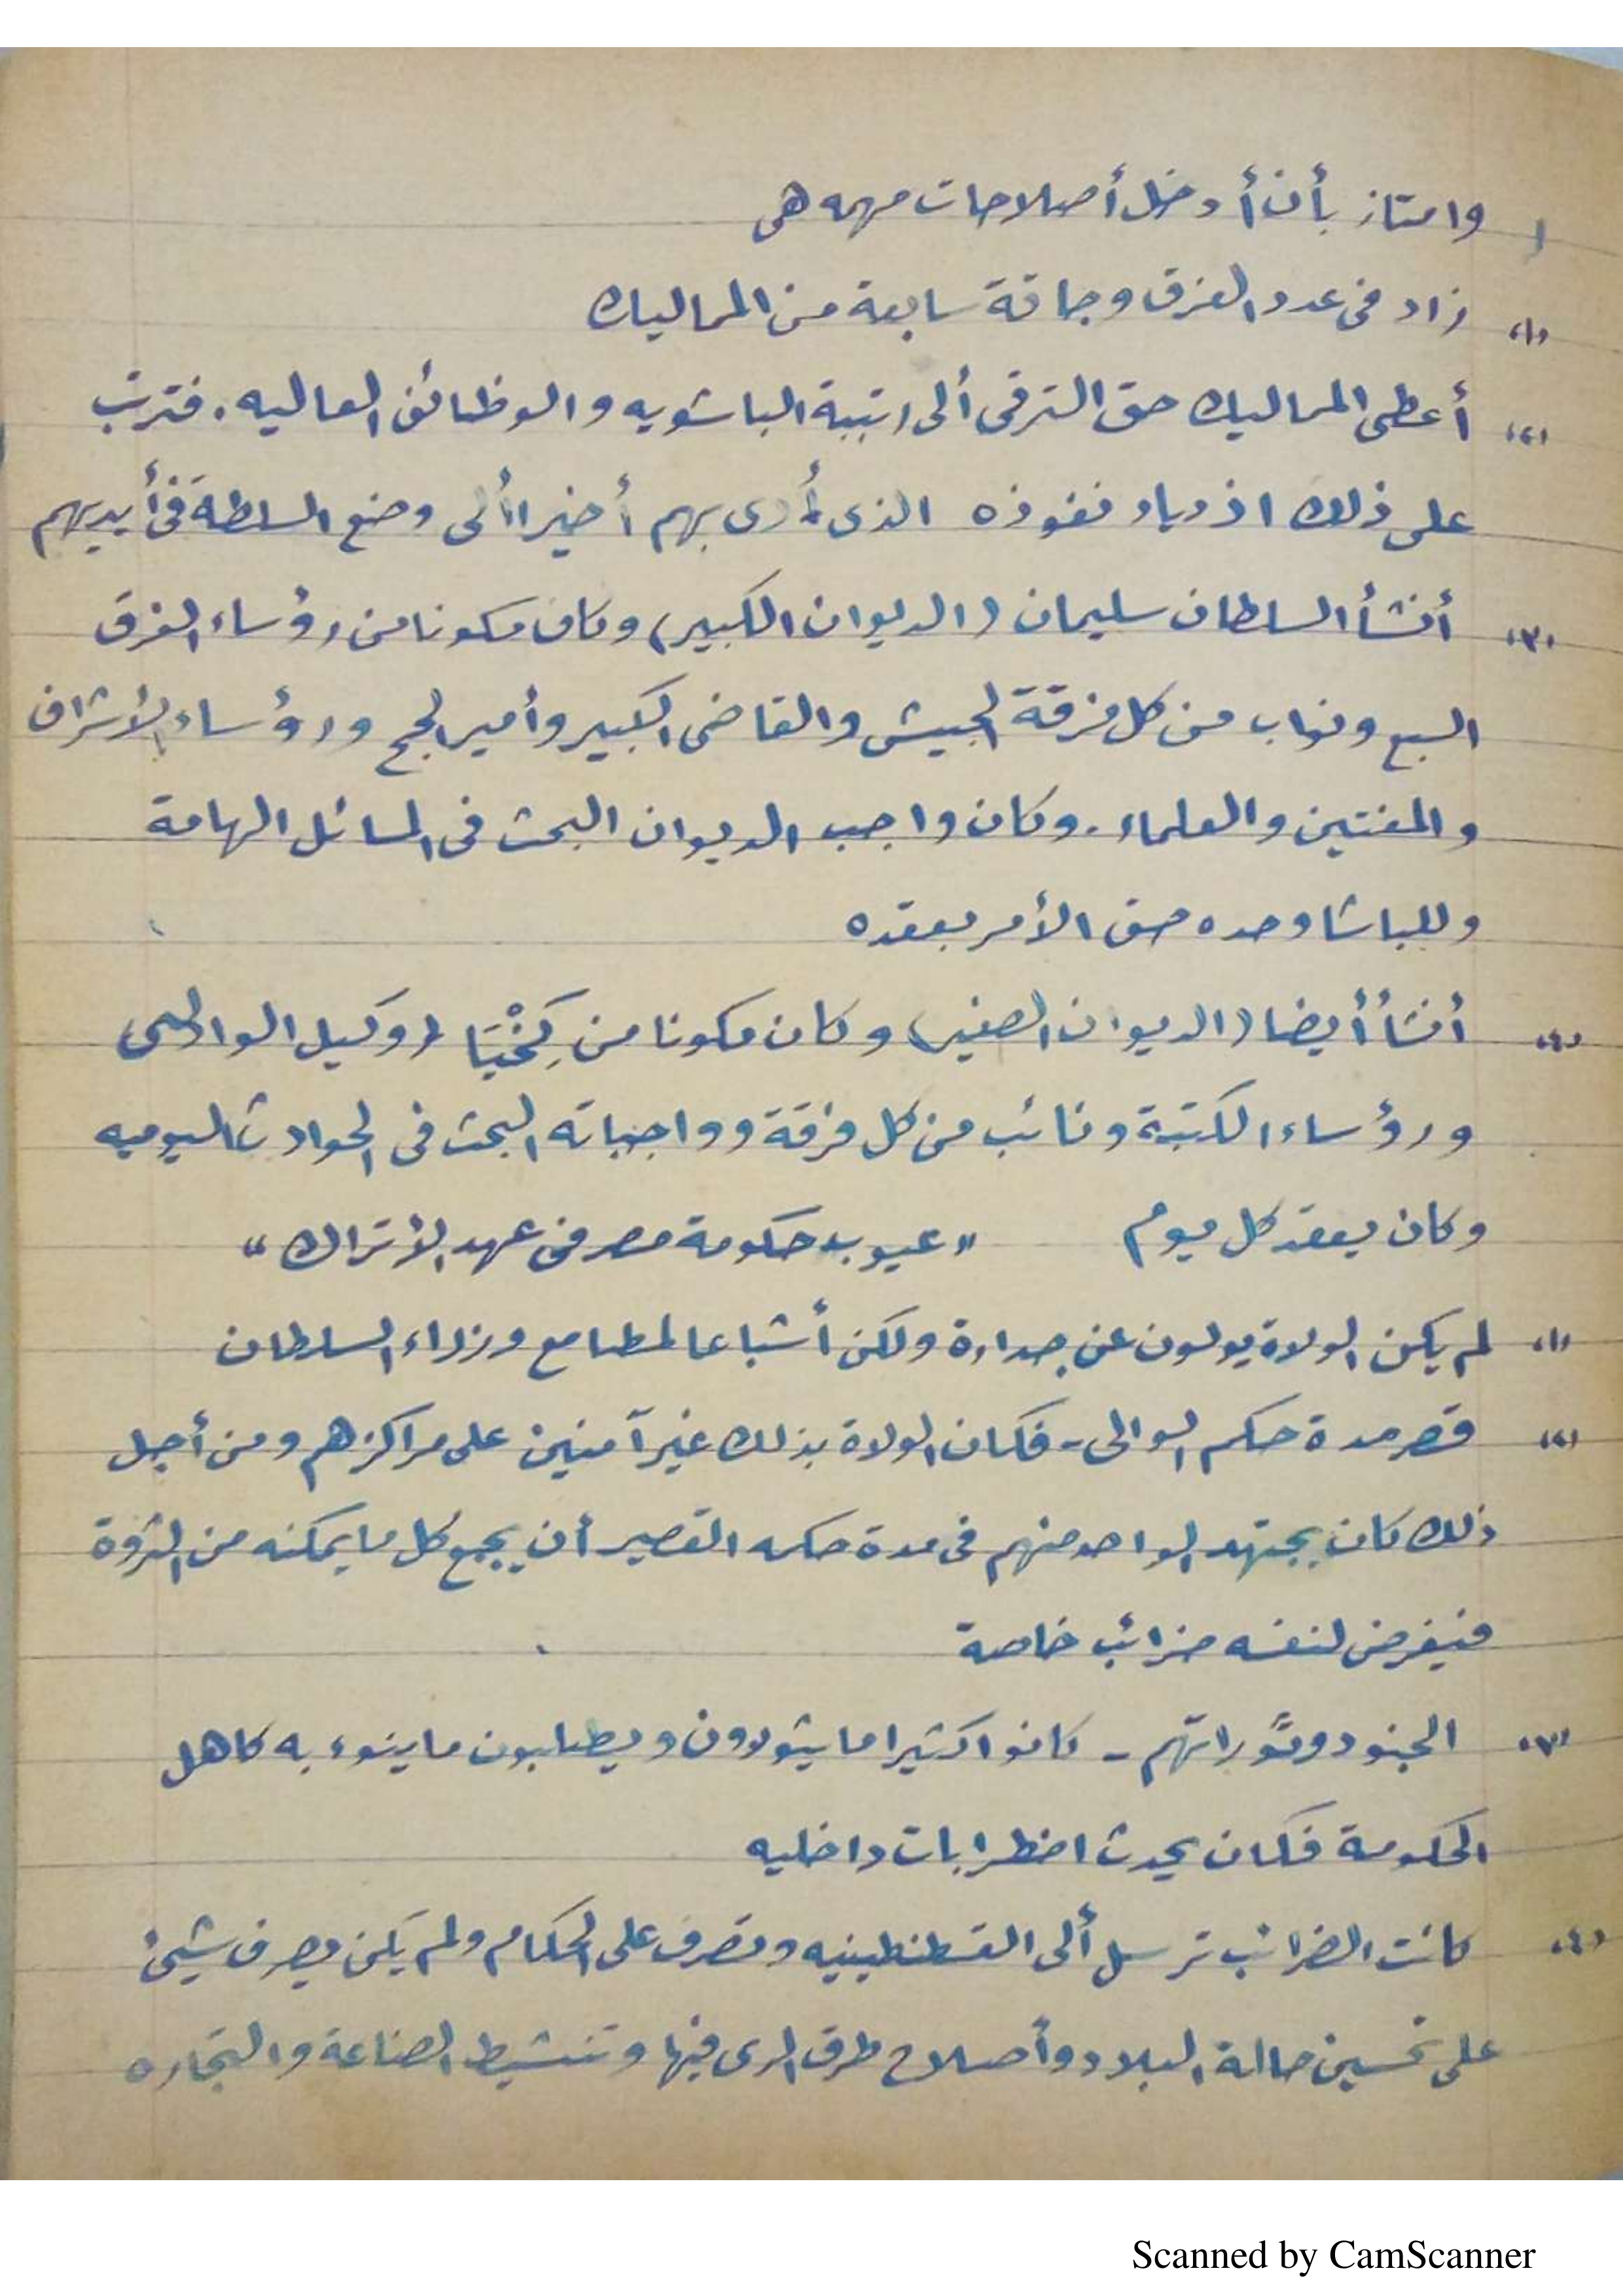 وامتاز بأن أدخل أصلاحات مهمه هى
(١) زاد فى عدد الفرق وجاقة سابعة من المماليك
(٢) أعطى المماليك حق الترقى ألى رتبة الباشويه والوظائف العاليه . فترتب
على ذلك اذدياد نفوذه الذى أدى بهم أخيرا ألى وضع السلطة فى أيديهم
(٣) أنشأ السلطان سليمان (الديوان الكبير) وكان مكونا من رؤساء الفرق
السبع ونواب من كل فرقة الجيش والقاضى الكبير وأمير الحج ورؤساء الأشراف
والمفتين والعلماء . وكان واجب الديوان البحث فى المسائل الهامة
وللباشا وحده حق الأمر بعقده
(٤) أنشأ أيضا (الديوان الصغير) وكان مكونا من كِخْيَا (وكيل الوالى)
ورؤساء الكتبة ونائب من كل فرقة وواجباته البحث فى الحوادث اليوميه
وكان يعقد كل يوم " عيوب حكومة مصر فى عهد الأتراك "
(١) لم يكن الولاة يولون عن جدارة ولكن أشباعا لمطامع وزراء السلطان
(٢) قصر مدة حكم الوالى - فكان الولاة بذلك غير آمنين على مراكزهم ومن أجل
ذلك كان يجتهد الواحد منهم فى مدة حكمه القصير أن يجمع كل ما يمكنه من الثروة
فيفرض لنفسه ضرائب خاصة
(٣) الجنود وثوراتهم - كانوا كثيرا ما يثورون ويطلبون ما ينوء به كاهل
الحكومة فكان يحدث اضطرابات داخليه
(٤) كانت الضرائب ترسل ألى القسطنطينيه وتصرف على الحكام ولم يكن يصرف شيئ
على تحسين حالة البلاد وأصلاح طرق الرى فيها وتنشيط الصناعة والتجاره
Scanned by CamScanner